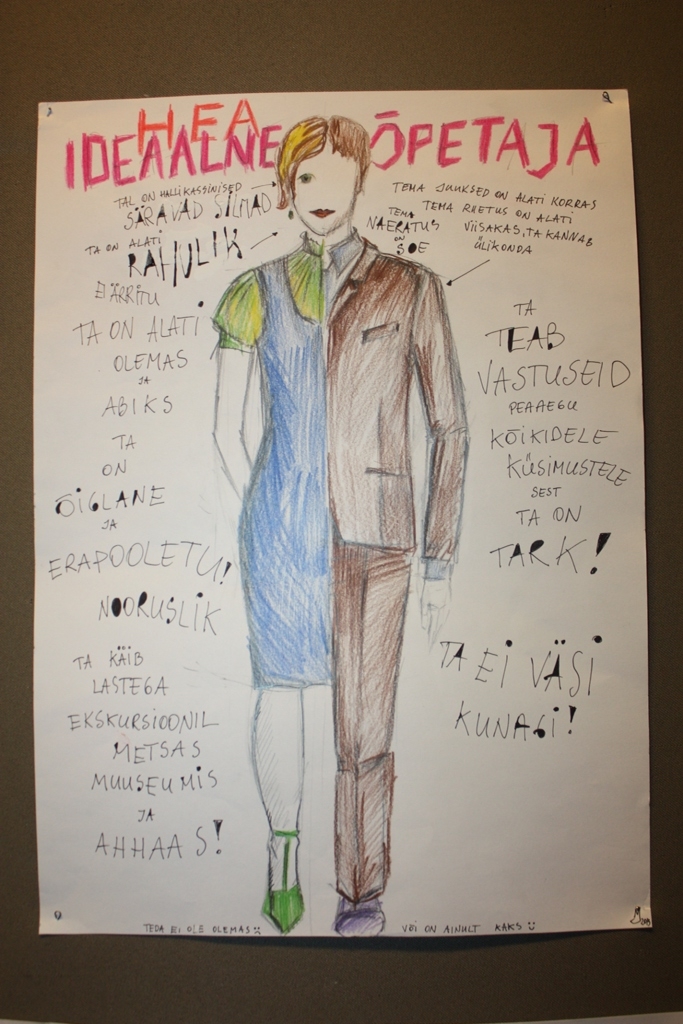 HEA
IDEAALNE ÕPETAJA
TAL ON HALLIKASSINISED
SÄRAVAD SILMAD
TA ON ALATI
RAHULIK
EI ÄRRITU
TA ON ALATI
OLEMAS
JA
ABIKS
TA
ON
ÕIGLANE
JA
ERAPOOLETU!
NOORUSLIK
TA KÄIB
LASTEGA
EKSKURSIOONIL
METSAS
MUUSEUMIS
JA
AHHAAS!
TEMA JUUKSED ON ALATI KORRAS
TEMA RIIETUS ON ALATI
VIISAKAS, TA KANNAB
ÜLIKONDA
TEMA
NAERATUS
ON
SOE
TA
TEAB
VASTUSEID
PEAAEGU
KÕIKIDELE
KÜSIMUSTELE
SEST
TA ON
TARK!
TA EI VÄSI
KUNAGI!
TEDA EI OLE OLEMAS :(
VÕI ON AINULT KAKS :)